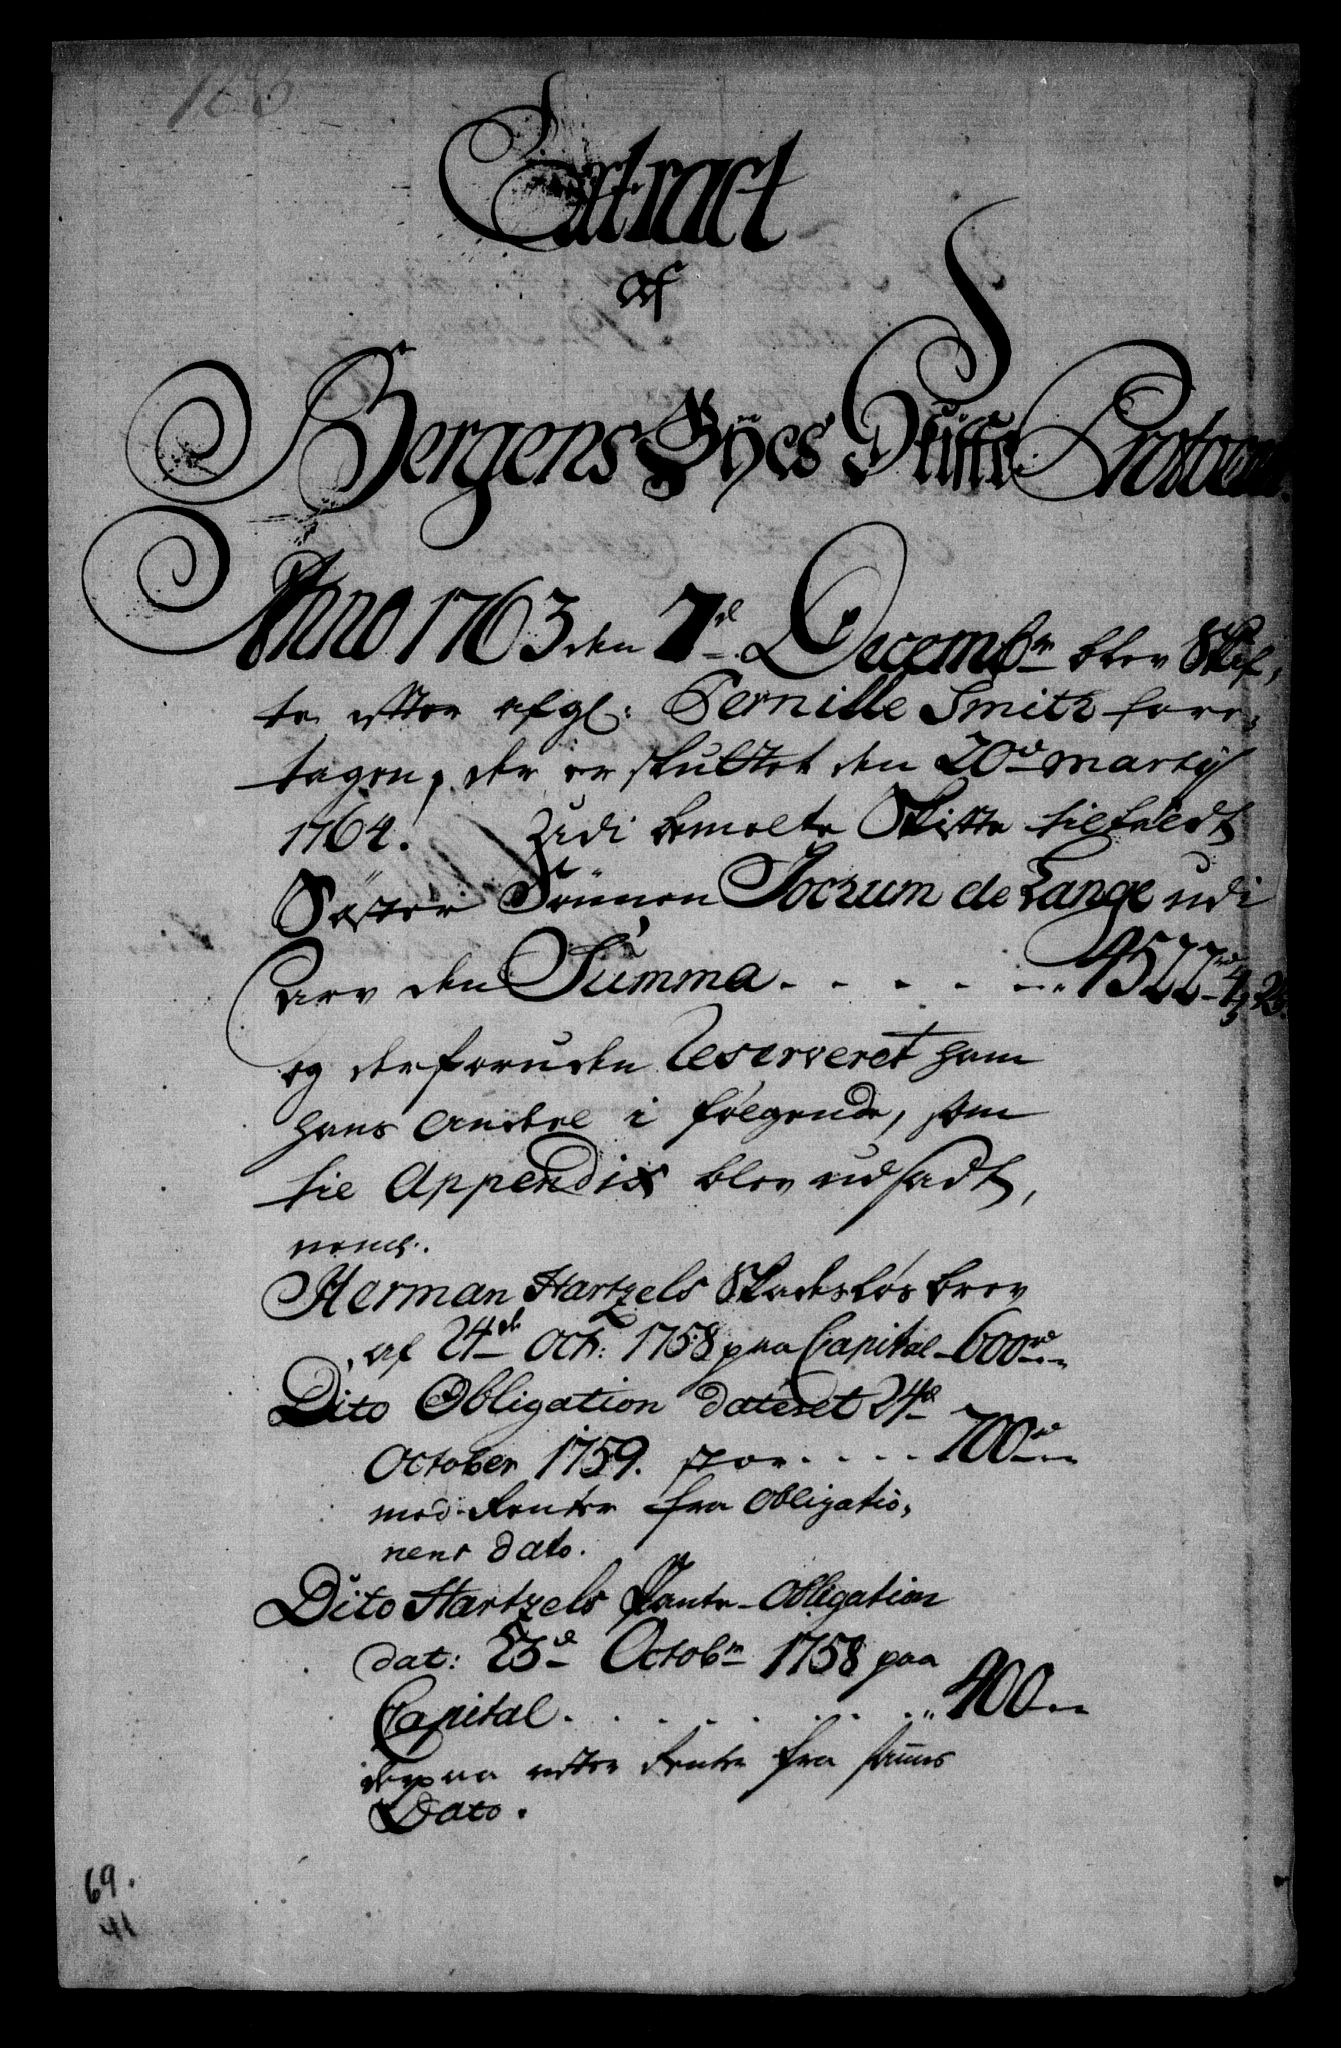 Extract
af
Bergens Byes Skifte Protocoll.
Anno 1763 den 7d Decembr blev Skif,
te efter afgl: Pernille Smith fore,
tagen, der er sluttet den 20d Martij
1764. Udi bemelte Skifte tilfaldt
Søster Sønnen Jochum de Lange udi
arv den Summa . . . . .
og desforuden reserveret ham
hans Andeel i følgende, som
til Appendix blev udsadt,
neml.
Herman Hartzels Skadesløs brev
af 24de Oct: 1758 paa Capital - 600rd
Dito Obligation dateret 24d
October 1759. stor . . . . 700rd
med Renter fra Obligatio,
nens dato.
Dito Hartzels Pante-Obligation
dat: 23d Octobr 1758 paa
Capital . . . . . . . . 400
Renter fra samme
Dato.
69.
41